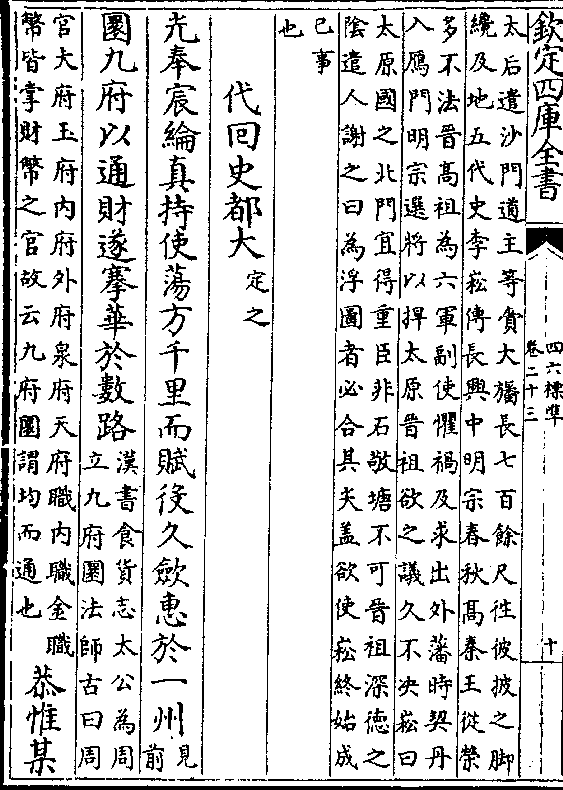 欽定四庫全書
四六標準
卷二十三
十
太后遣沙門道主等賫大旛長七百餘尺徃彼披之脚
纔及地五代史李崧傳長興中明宗春秋髙秦王從榮
多不法晉髙祖為六軍副使懼禍及求出外藩時契丹
入鴈門明宗選將以捍太原晉祖欲之議久不決崧曰
太原國之北門宜得重臣非石敬塘不可晉祖深徳之
陰遣人謝之曰為浮圖者必合其尖盖欲使崧終始成
己事
也
代回史都大定之
光奉宸綸真持使蕩方千里而賦徃久歛惠於一州見前
圜九府以通財遂搴華於數路漢書食貨志太公為周
立九府圜法師古曰周
官大府玉府内府外府泉府天府職内職金職
幣皆掌財幣之官故云九府圜謂均而通也恭惟某